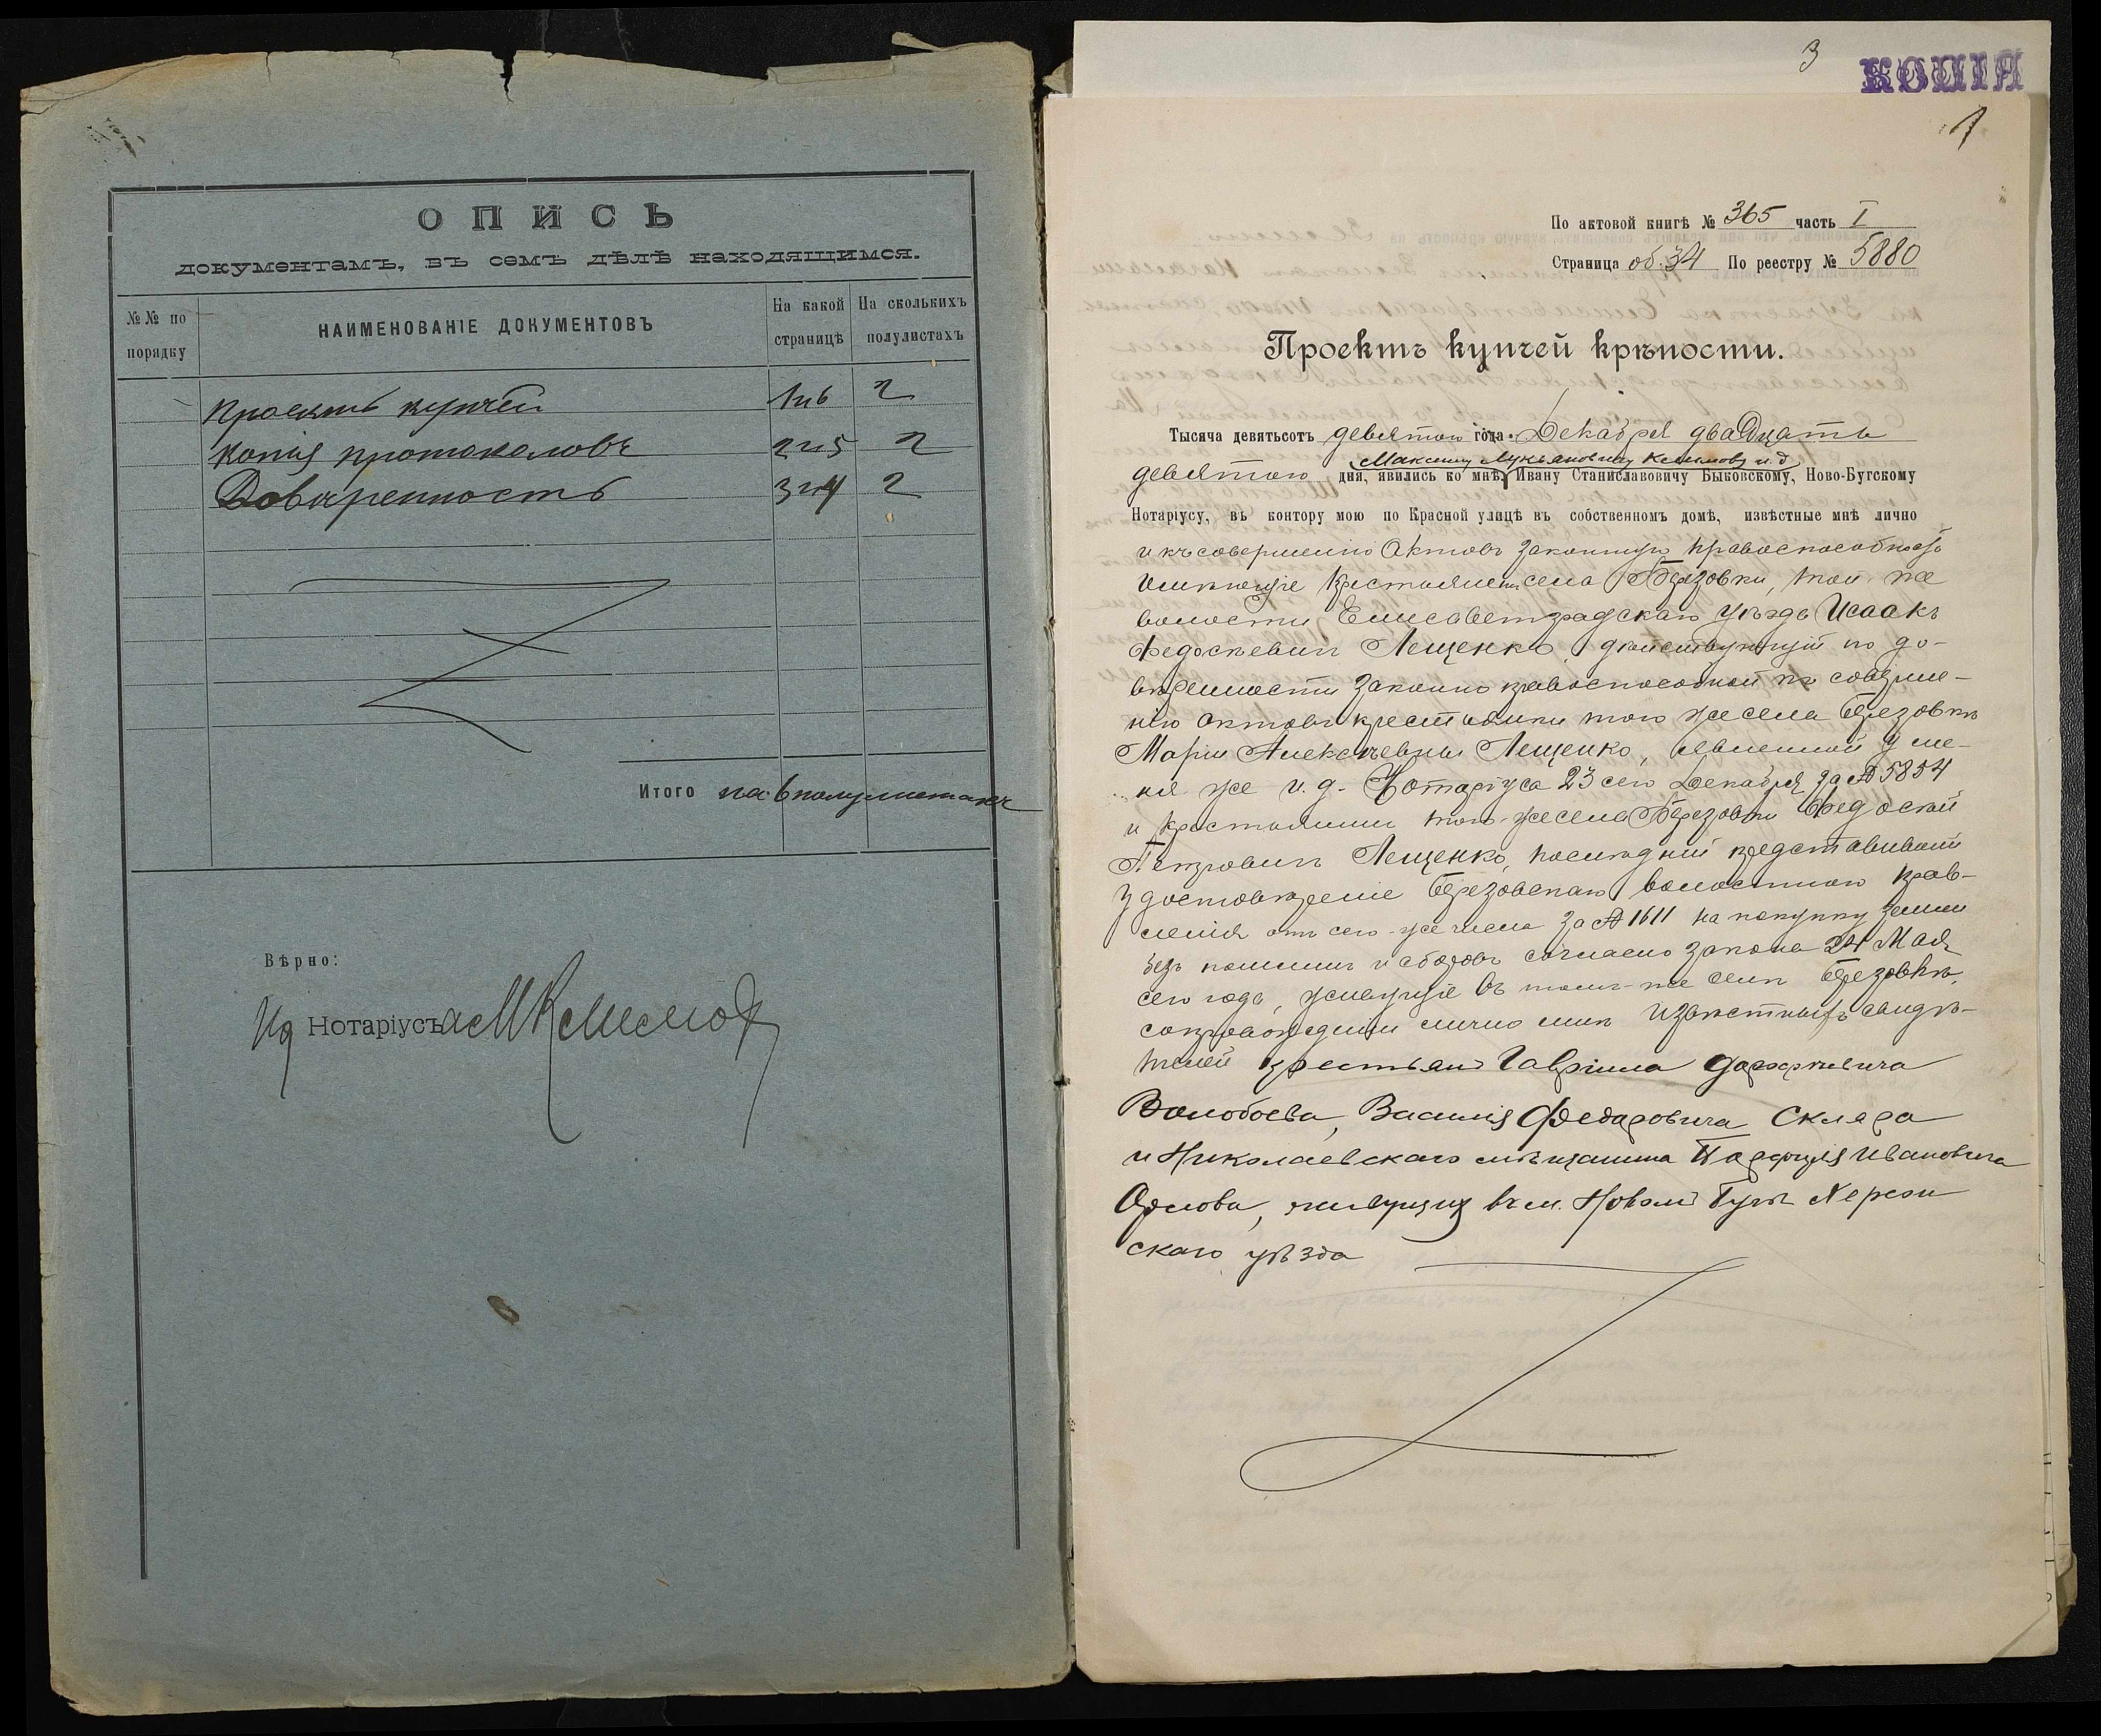 ОПИСЬ
документамъ, въ семъ дѣлѣ находящимся.
№№ по порядку
НАИМЕНОВАНІЕ ДОКУМЕНТОВЪ
На какой страницѣ
На сколькихъ полулистахъ
Проектъ купчей 1 и 6 2
Копія протоколовъ 2 и 5 2
Довѣренность 3 и 4 2
Итого на 6 полулистахъ
Вѣрно:
Ид Нотаріуса
3
КОПІЯ
1
По актовой книгѣ № 365 часть I
Страница об. 34 По реестру № 5880
Проектъ купчей крѣпости.
Тысяча девятьсотъ девятого года Декабря двадцать
Максиму Лукьяновичу Климову и.д
девятого дня, явились ко мнѣ, Ивану Станиславовичу Быковскому, Ново-Бугскому
Нотаріусу, въ контору мою по Красной улицѣ въ собственномъ домѣ, извѣстные мнѣ лично
и къ совершенію актовъ законную правоспособность
имѣющіе крестьяне села Березовки, той же
волости Елисаветградскаго уѣзда Исаакъ
Федосѣевичъ Лещенко, дѣйствующій по до-
вѣренности законно правоспособной къ соверше-
нію актовъ крестьянки того же села Березовки
Маріи Алексѣевны Лещенко, явленной у ме-
ня же и. д. Нотаріуса 23 сего Декабря за № 5854
и крестьянинъ того-же села Березовки Федосѣй
Петровичъ Лещенко, послѣдній представившій
удостовѣреніе Березовскаго волостного прав-
ленія отъ сего-же числа за № 1611 на покупку земли
безъ пошлинъ и сборовъ согласно закона 24 Мая
сего года, живущіе въ томъ-же селѣ Березовкѣ,
сопровожденіи лично мнѣ извѣстныхъ свидѣ-
телей крестьянъ Гавріила Дорофѣевича
Волобоева, Василія Федоровича Скляра
и Николаевскаго мѣщанина Парфилія Ивановича
Орлова, живущихъ въ м. Новомъ Бугѣ Херсон
скаго уѣзда